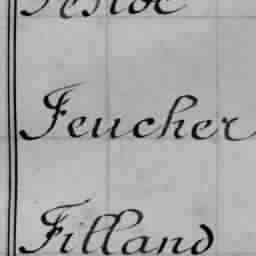 Feucher
Filland